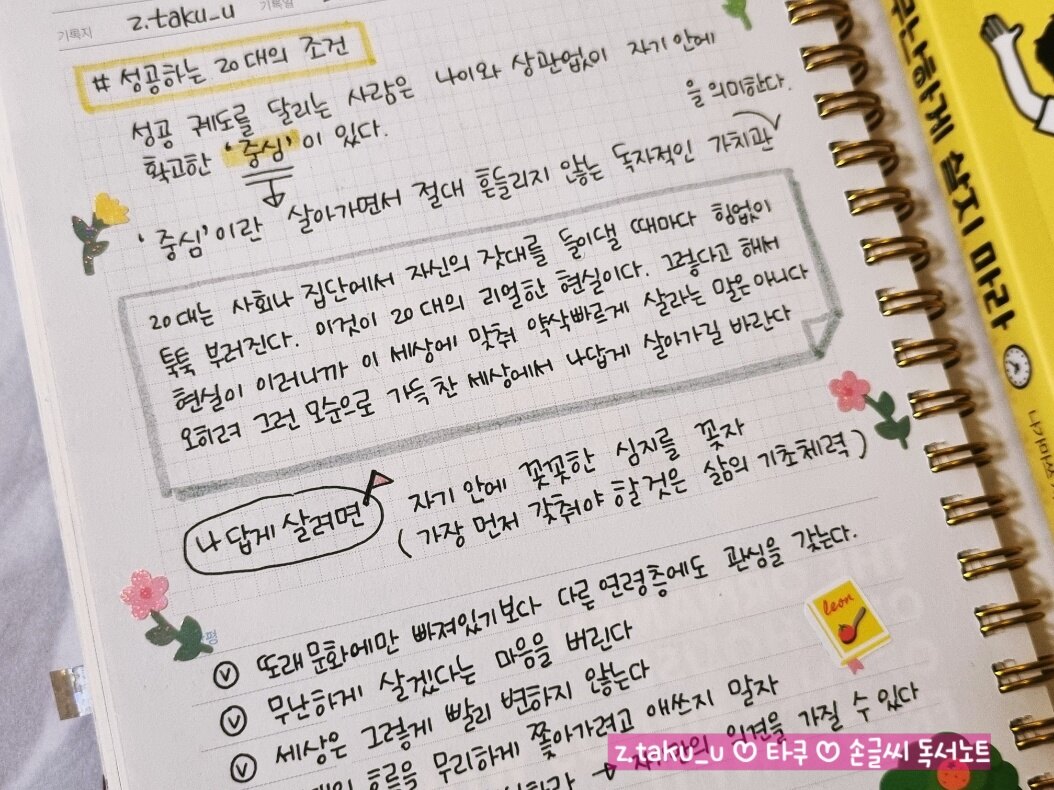 기록지 z.taku_u 기록일
# 성공하는 20대의 조건
성공 궤도를 달리는 사람은 나이와 상관없이 자기 안에
확고한 '중심'이 있다.
을 의미한다.
'중심'이란 살아가면서 절대 흔들리지 않는 독자적인 가치관
20대는 사회나 집단에서 자신의 잣대를 들이댈 때마다 힘없이
툭툭 부러진다. 이것이 20대의 리얼한 현실이다. 그렇다고 해서
현실이 이러니까 이 세상에 맞춰 약삭빠르게 살라는 말은 아니다
오히려 그런 모순으로 가득찬 세상에서 나답게 살아가길 바란다
나답게 살려면 자기 안에 꼿꼿한 심지를 꽂자
(가장 먼저 갖춰야 할 것은 삶의 기초체력)
평
ⓥ 또래문화에만 빠져있기보다 다른 연령층에도 관심을 갖는다.
ⓥ 무난하게 살겠다는 마음을 버린다
ⓥ 세상은 그렇게 빨리 변하지 않는다
흐름을 무리하게 쫓아가려고 애쓰지 말자
의견을 가질 수 있다
leon
무난하게 살지 마라
z.taku_u ♡ 타쿠 ♡ 손글씨 독서노트